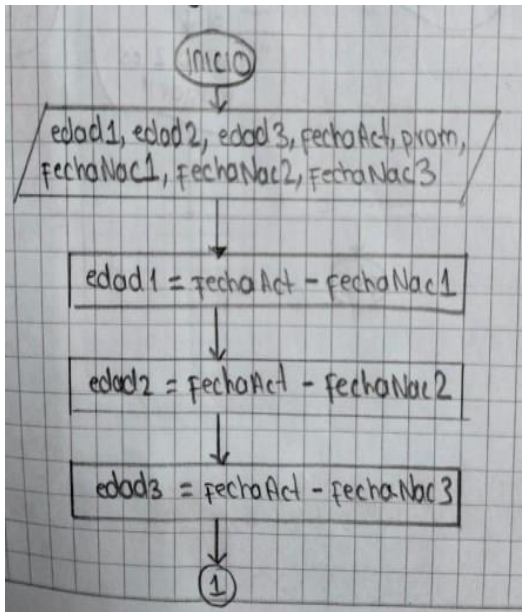 inicio
edad1, edad2, edad3, fechaAct, prom,
fechaNac1, fechaNac2, fechaNac3
edad1 = fechaAct - fechaNac1
edad2 = fechaAct - fechaNac2
edad3 = fechaAct - fechaNac3
1